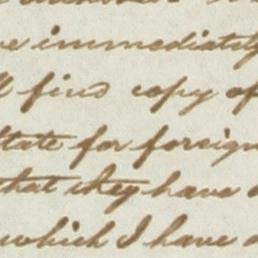 immediately
find copy of
State for foreign
that they have
which I have